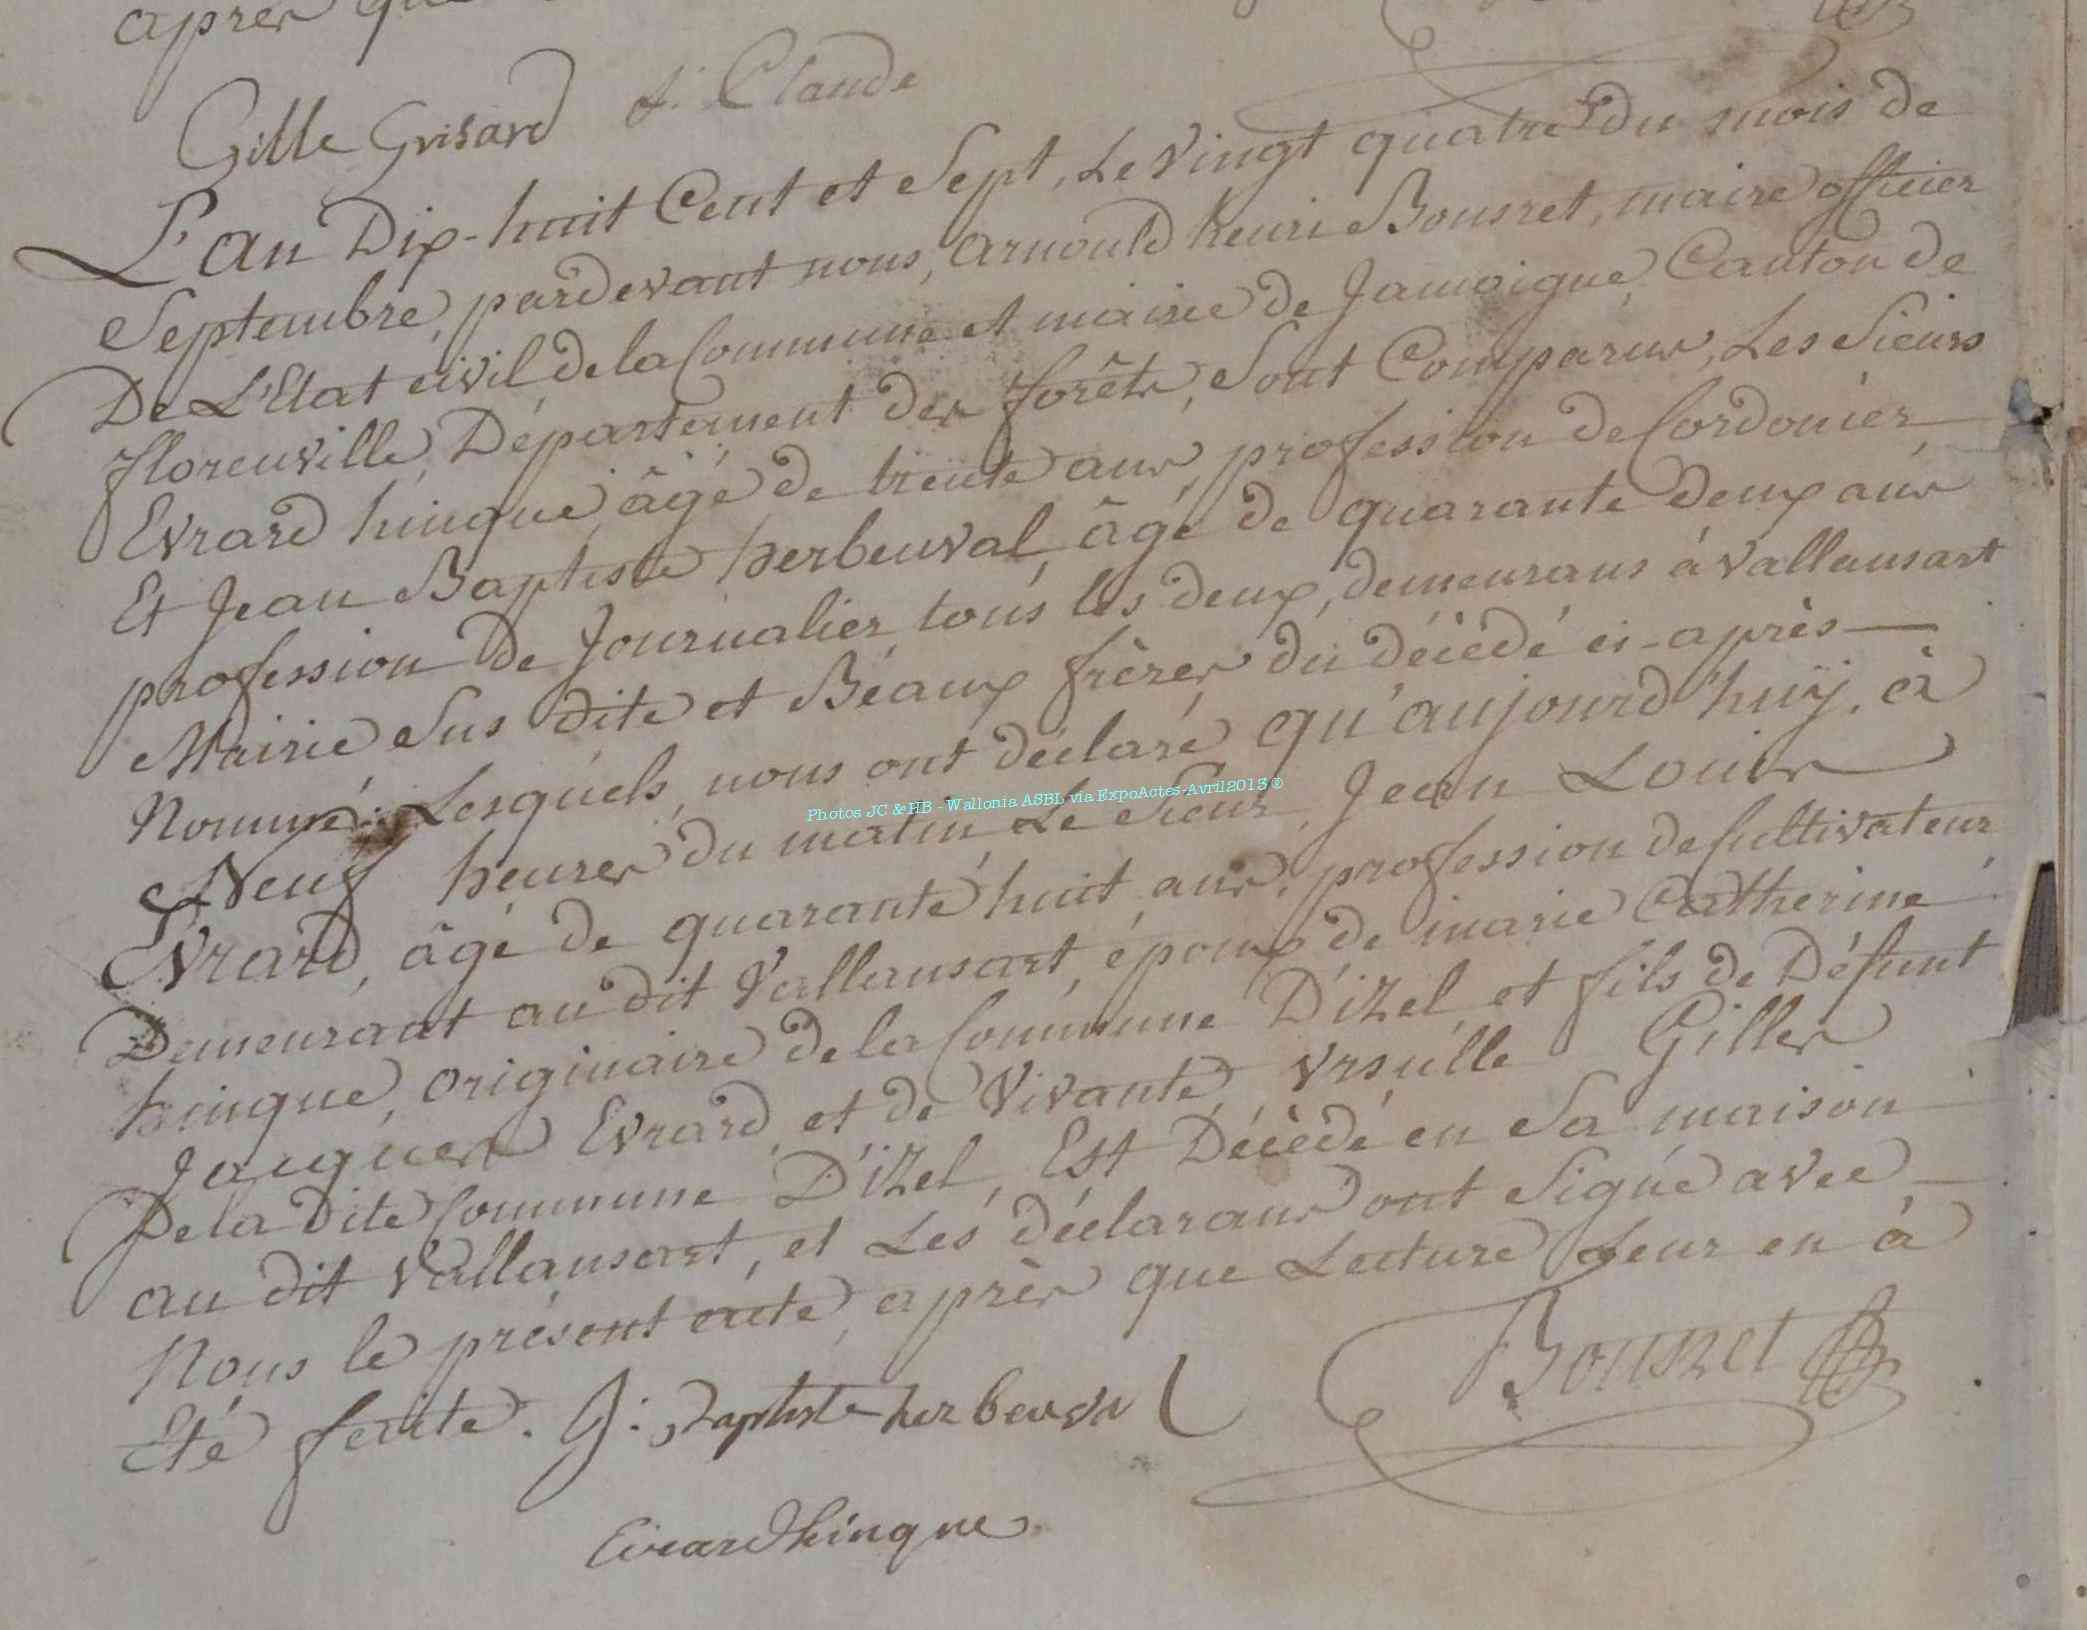 après que
Gille Grisard f. Claude
L'an Dix-huit Cent et Sept, Le Vingt quatre du mois de
Septembre, pardevant nous, arnould henri Bousret, maire officier
De L'Etat civil, de la Commune et mairie de Jamoigne, Canton de
florenville, Département des forêts, Sont Comparus, Les Sieurs
Evrard hinque, âgé de trente ans, profession de Cordonier,
Et Jean Baptiste herbeuval, âgé de quarante Deux ans
profession de Journalier, tous les deux, demeurans à Vallansart
Mairie Sus dite et Béaux frères du décédé ci-après
Nommé. Lesquels, nous ont déclaré qu'aujourd'huÿ, à
Neuf heures du matin Le Sieur, Jean Louis
Photos JC & HB - Wallonia ASBL via ExpoActes-Avril2013 ©
Evrard, âgé de quarante huit ans, profession de Cultivateur
Demeurant au dit Vallansart, époux de marie Catherine
hinque, originaire de la Commune D'izel, et fils de Défunt
Jacques Evrard, et de Vivante, Ursulle Gilles
De la Dite Commune D'izel, Est Décédé en Sa maison
au dit Vallansart, et Les déclarans ont Signé avec
Nous le présent acte, après que Lecture Leur en à
Eté faite. J: Baptiste herbeuval Bousret
Evrard hinque